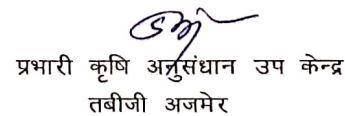 प्रभारी कृषि अनुसंधान उप केन्द्र
तबीजी अजमेर